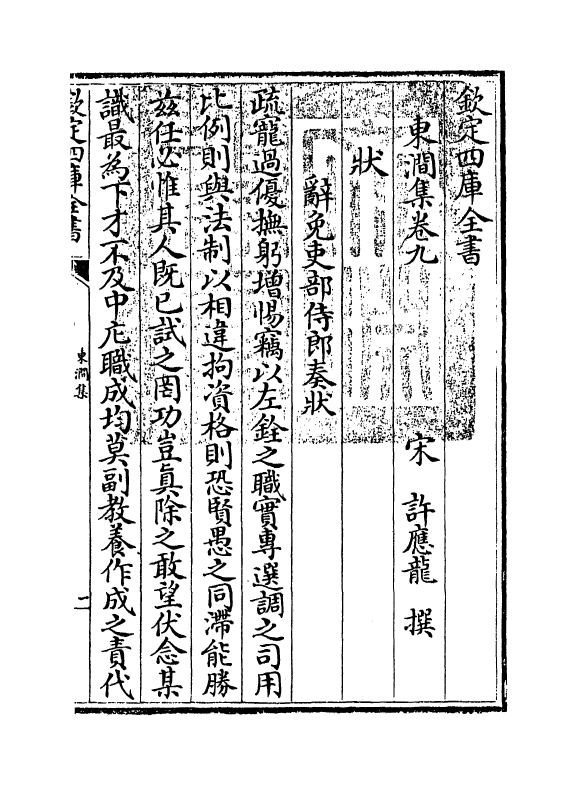 欽定四庫全書
東澗集卷九　宋　許應龍　撰
狀
辭免吏部侍郎奏狀
疏寵過優撫躬增惕竊以左銓之職實專選調之司用
比例則與法制以相違拘資格則恐賢愚之同滯能勝
茲任必惟其人既已試之罔功豈真除之敢望伏念某
識最為下才不及中庀職成均莫副教養作成之責代
欽定四庫全書
東澗集
二